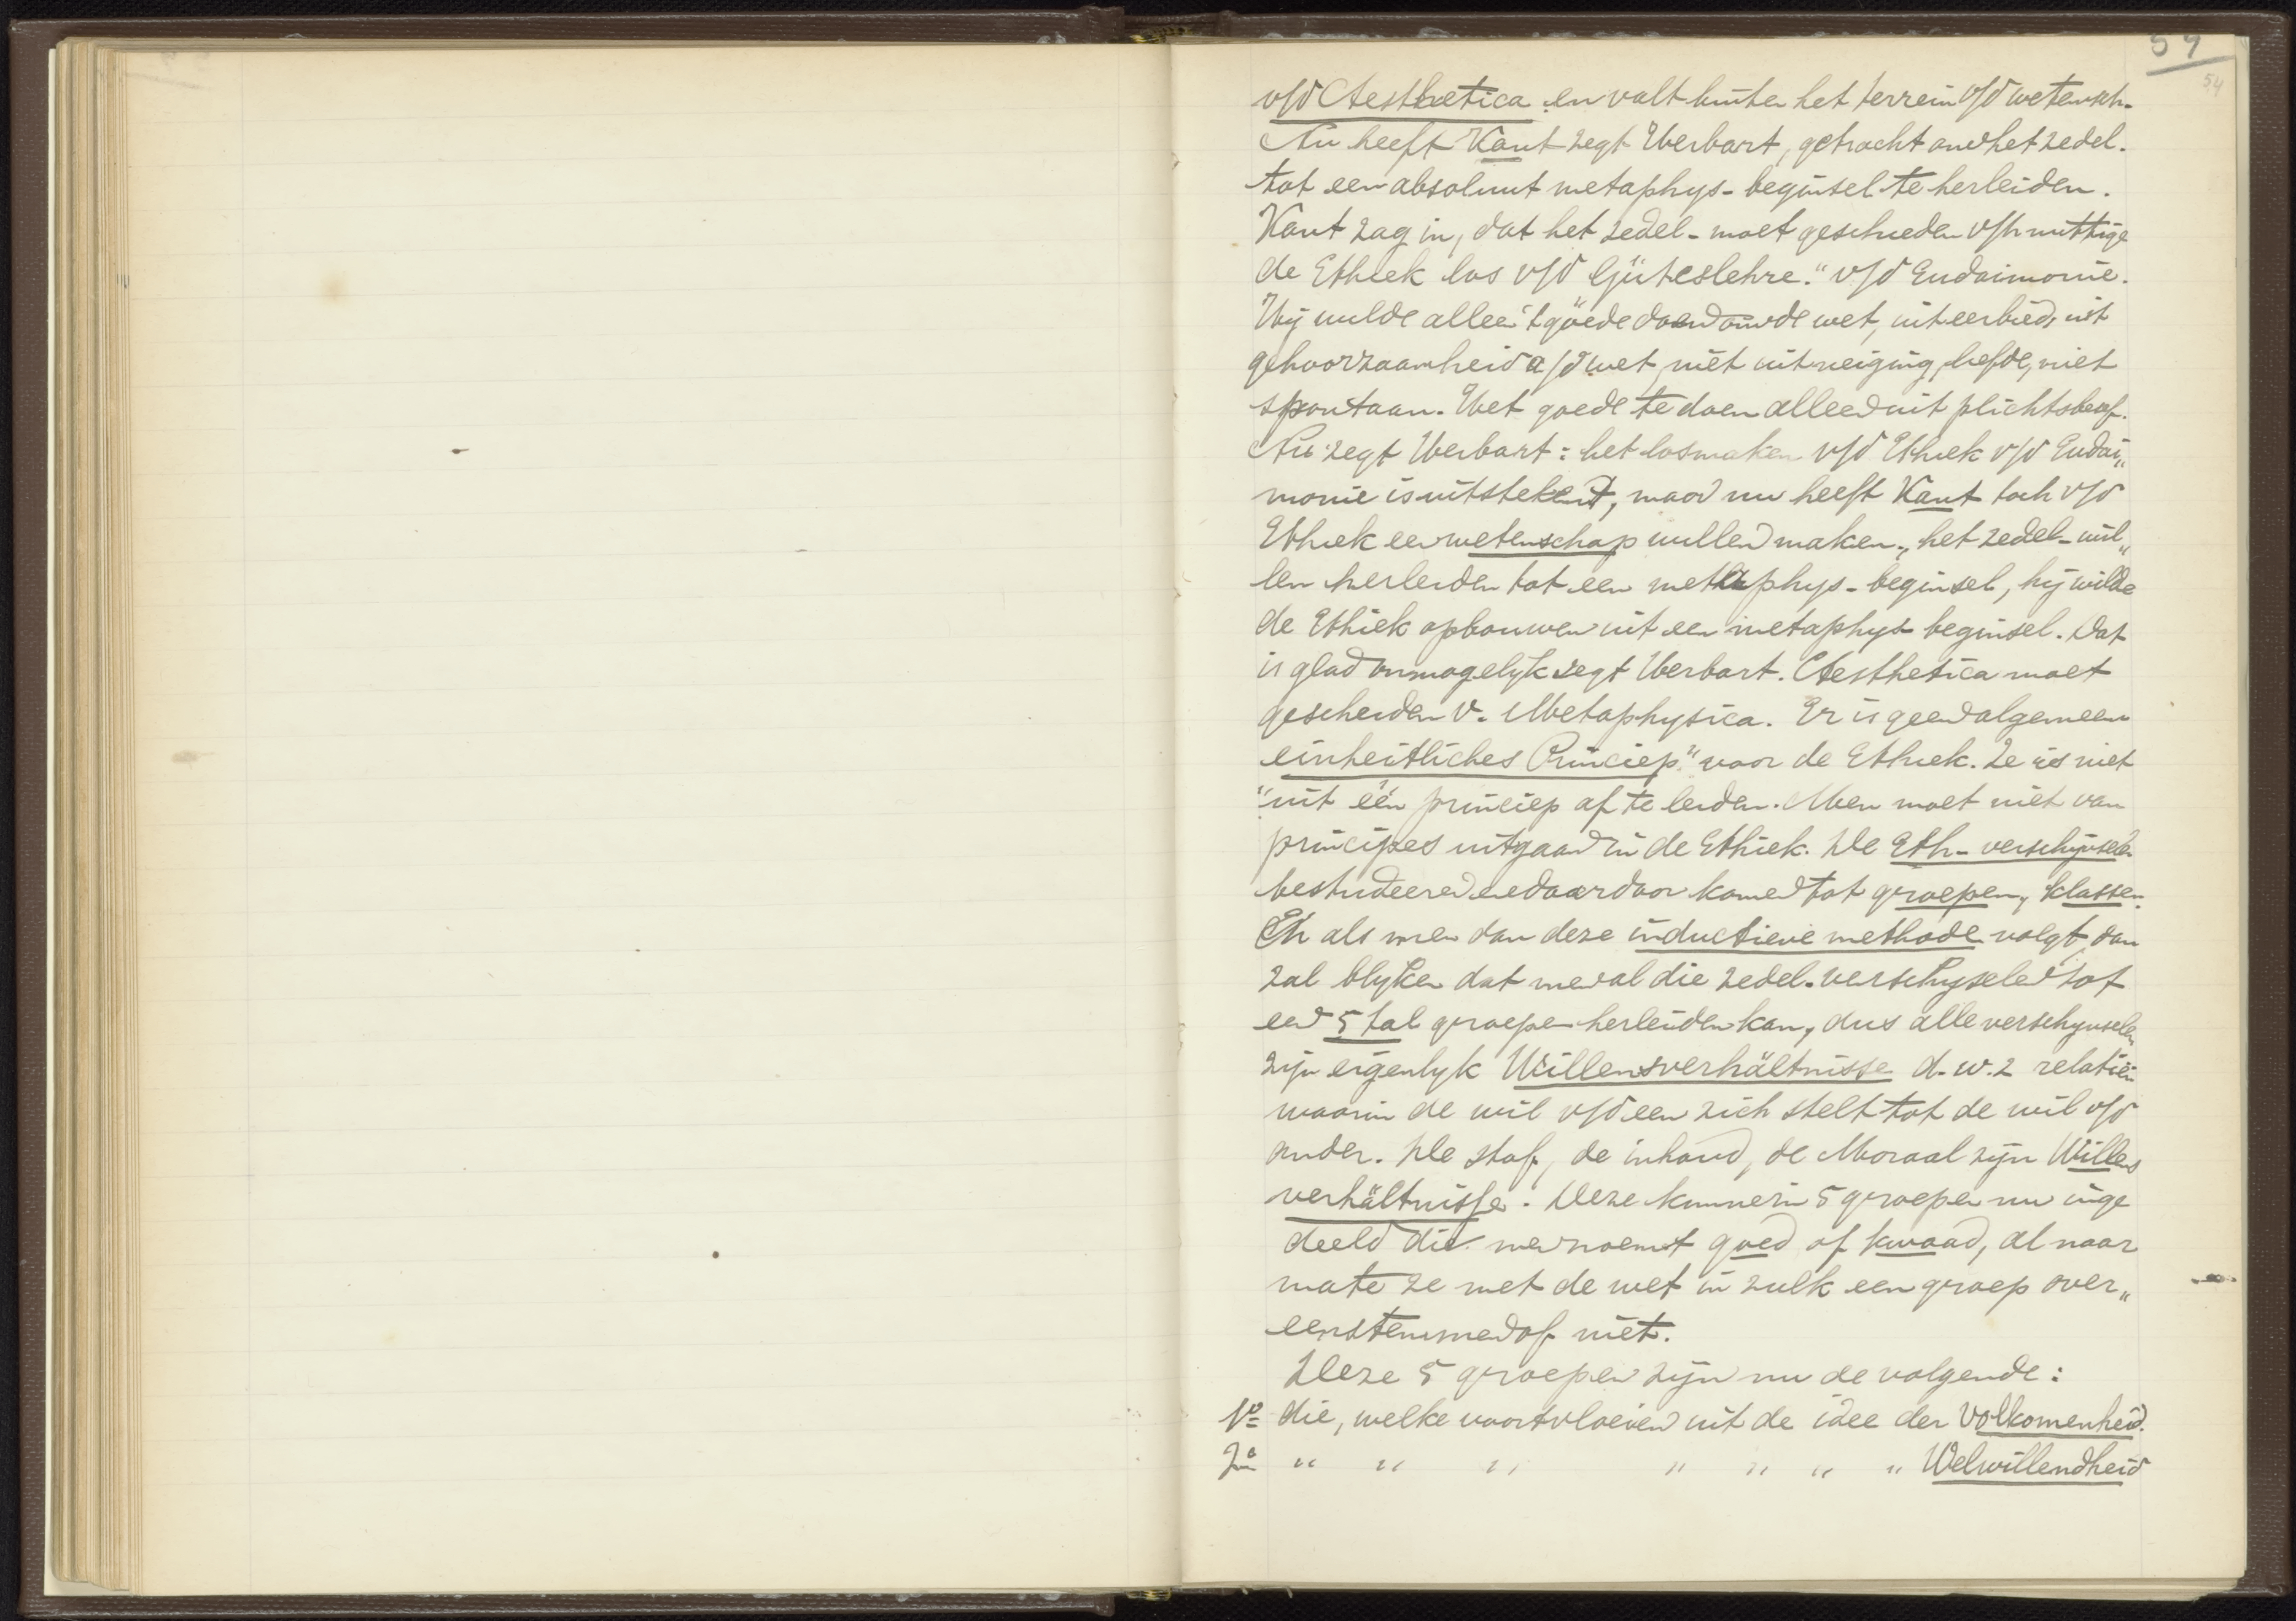 54
54
v/d Aesthetica en valt buiten het terrein v/d wetensch.
Nu heeft Kant zegt Herbart, getracht om het zedel.
tot een absoluut metaphys- beginsel te herleiden.
Kant zag in, dat het zedel- moet gescheiden v/h nuttige
de Ethiek los v/d Güterslehre." v/d Eudaimonie.
Hij wilde alleen 't goede doen om de wet, uit eerbied, uit
gehoorzaamheid a/d wet, niet uit neiging, liefde, niet
spontaan. Het goede te doen alleen uit plichtsbesef.
Nu zegt Herbart: het losmaken v/d Ethiek v/d Eudai„
monie is uitstekend, maar nu heeft Kant toch v/d
Ethiek een wetenschap willen maken, het zedel- wil„
len herleiden tot een metaphys- beginsel, hij wilde
de Ethiek opbouwen uit een metaphys- beginsel. Dat
is glad onmogelyk zegt Herbart. Aesthetica moet
gescheiden v. Metaphysica. Er is geen algemeen
einheitliches Princiep" voor de Ethiek. Ze is niet
"uit één princiep af te leiden. Men moet niet van
principes uitgaan in de Ethiek. De Eth- verschijnselen
bestudeeren en daardoor komen tot groepen, klassen.
En als men dan deze inductieve methode volgt, dan
zal blyken dat men al die zedel. verschijnselen tot
een 5 tal groepen herleiden kan, dus alle verschynselen
zijn eigenlyk Willensverhältnisse d.w.z relatiën
waarin de wil v/d een zich stelt tot de wil v/d
ander. De stof, de inhoud, de Moraal zijn Willens
verhältnisse. Deze kunnen in 5 groepen nu inge
deeld die men noemt goed of kwaad, al naar
mate ze met de wet in zulk een groep over„
eenstemmen of niet.
Deze 5 groepen zijn nu de volgende:
1º die, welke voortvloeien uit de idee der Volkomenheid.
2º " " " " " " " Welwillendheid